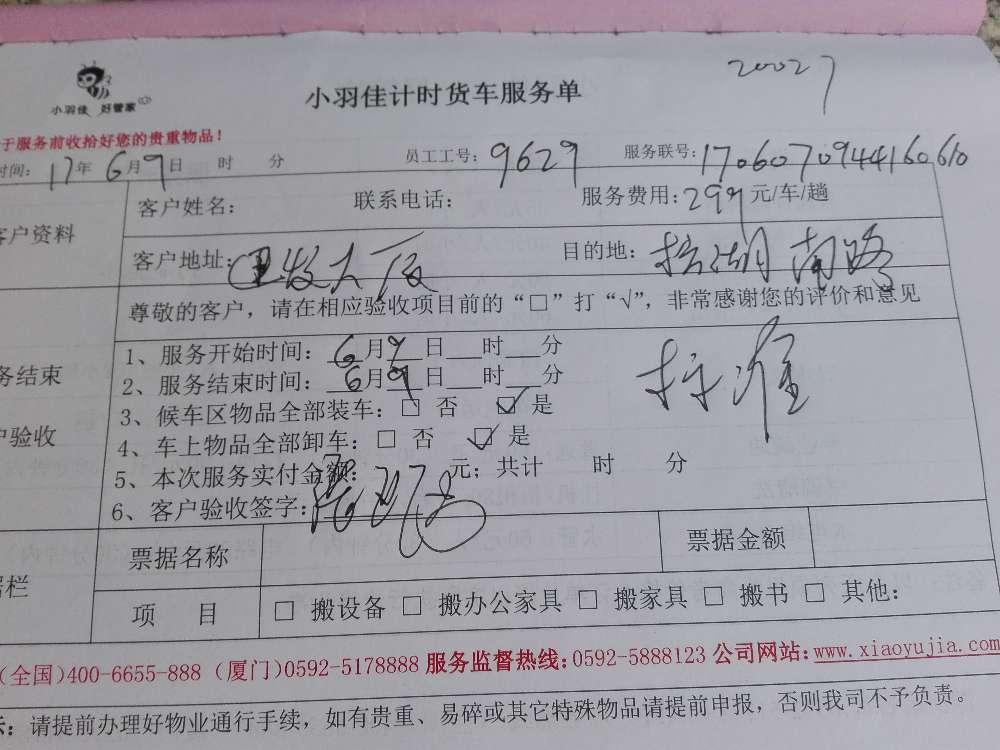 20027
小羽佳 好管家
小羽佳计时货车服务单
于服务前收拾好您的贵重物品！
时间：17年6月9日 时 分 员工工号：9629 服务联号：1706070944160610
客户资料
客户姓名： 联系电话： 服务费用：299元/车/趟
客户地址： 大厦 目的地： 湖南路
尊敬的客户，请在相应验收项目前的“□”打“√”，非常感谢您的评价和意见
务结束
户验收
1、服务开始时间：6月9日___时___分
2、服务结束时间：6月9日___时___分
3、候车区物品全部装车：□ 否 ☑ 是
4、车上物品全部卸车：□ 否 ☑ 是
5、本次服务实付金额： 元；共计 时 分
6、客户验收签字：
栏
票据名称 票据金额
项 目 □ 搬设备 □ 搬办公家具 □ 搬家具 □ 搬书 □ 其他：
（全国）400-6655-888（厦门）0592-5178888 服务监督热线：0592-5888123 公司网站：www.xiaoyujia.com
示：请提前办理好物业通行手续，如有贵重、易碎或其它特殊物品请提前申报，否则我司不予负责。